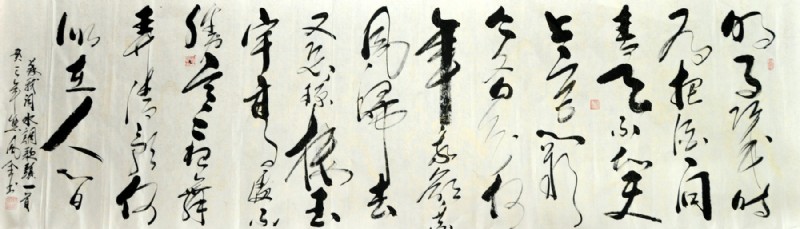 明月幾时
有把酒问
青天不知天
上宫阙
今夕是何
年我欲乘
风归去
又恐琼楼玉
宇高处不
胜寒起舞
弄清影何
似在人间
苏轼词水调歌头一首
年
书